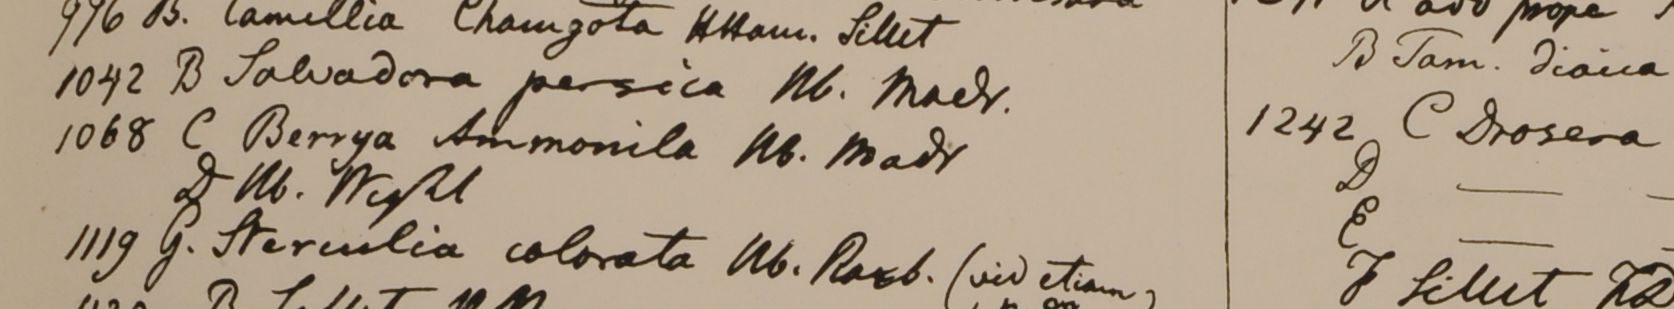 996 B. Camellia Chamgota HHam. Sillet
1042 B Salvadora persica Hb. Madr.
1068 C Berrya Ammonila Hb. Madr
D Hb. Wight
1119 G. Sterculia colorata Hb. Roxb. (vid etiam
B Sillet
prope
B Tam. dioica
1242 C Drosera
D —
E —
F Sillet